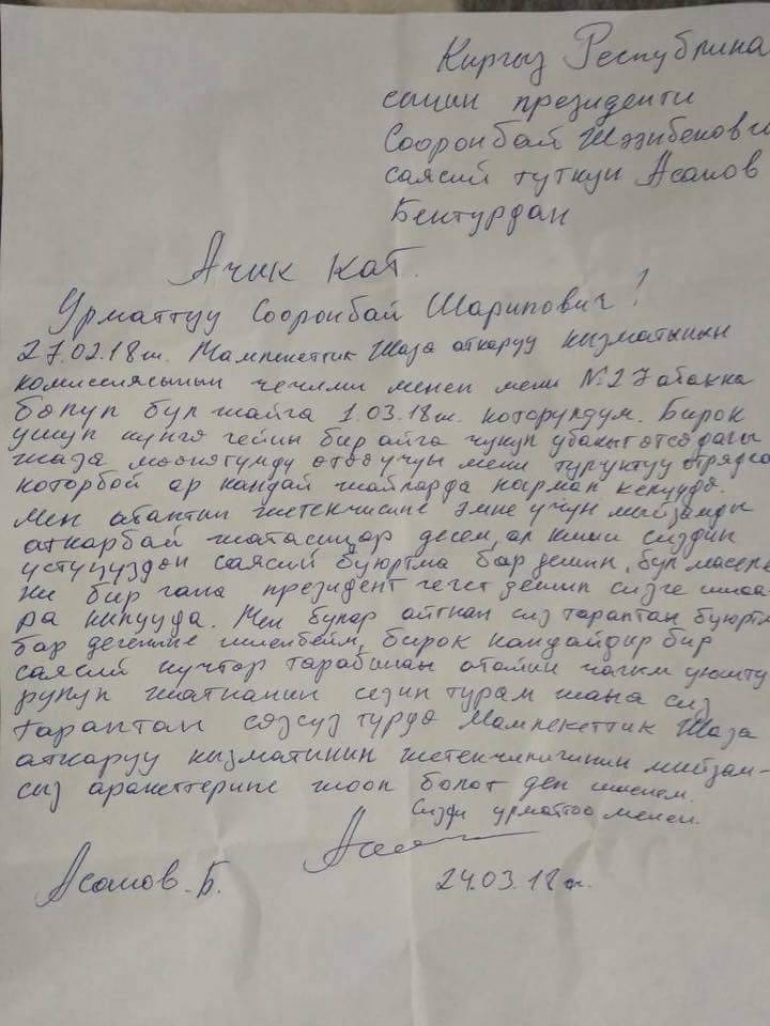 Кыргыз Республика
сынын президенти
Сооронбай Жээнбековго
саясий туткун Асанов
Бектурдан
Ачик кат.
Урматтуу Сооронбай Шарипович!
27.02.18ж. Мамлекеттик Жаза аткаруу кызматынын
комиссиясынын чечими менен мени №27 абакка
болуп бул жайга 1.03.18ж. которулдум. Бирок
ушул кунго чейин бир айга чукул убакыт отсо дагы
жаза моонотумду отоо учун мени туруктуу отрядга
которбой ар кандай жайларда кармап келууда.
Мен абактын жетекчисине эмне учун мыйзамды
аткарбай жатасицар десем, ал киши сиздин
устунуздон саясий буюртма бар дешип, бул маселе
ни бир гана президент чечет дешип сизге шыл
ра кылууда. Мен булар айткан сиз тараптан буюртм
бар дегенине ишенбейм, бирок кандайдыр бир
саясий кучтор тарабынан атайын чагым уюшту
рулуп жатканин сезип турам жана сиз
тараптан созсуз турдо Мамлекеттик Жаза
аткаруу кызматинин жетекчилигинин мыйзам-
сыз аракеттерине жооп болот деп ишенем.
Сизди урматтоо менен.
Асанов. Б.
24.03.18ж.